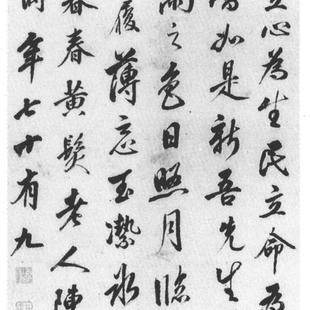 立心為生民立命為
如是新吾先生
之色日照月臨
履薄玉潔冰
春黃髮老人陳
時年七十有九